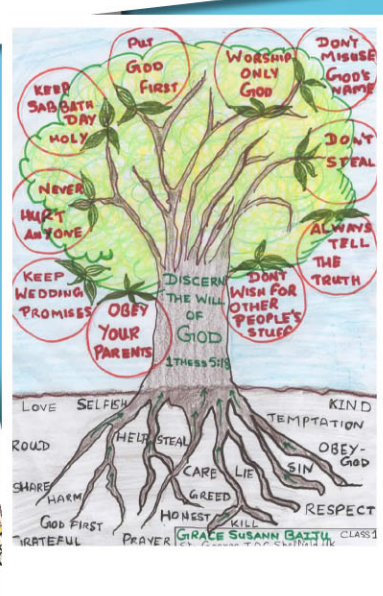 PUT
GOD
FIRST
WORSHIP
ONLY
GOD
DON'T
MISUSE
GOD'S
NAME
KEEP
SABBATH
DAY
HOLY
DON'T
STEAL
NEVER
HURT
ANYONE
ALWAYS
TELL
THE
TRUTH
KEEP
WEDDING
PROMISES
OBEY
YOUR
PARENTS
DISCERN
THE WILL
OF
GOD
1THESS 5:18
DONT
WISH FOR
OTHER
PEOPLE'S
STUFF
LOVE SELFISH KIND
TEMPTATION
ROUD HELP STEAL OBEY-
GOD
SHARE CARE LIE SIN
HARM GREED
HONEST RESPECT
GOD FIRST KILL
RATEFUL PRAYER GRACE SUSANN BAIJU CLASS 1